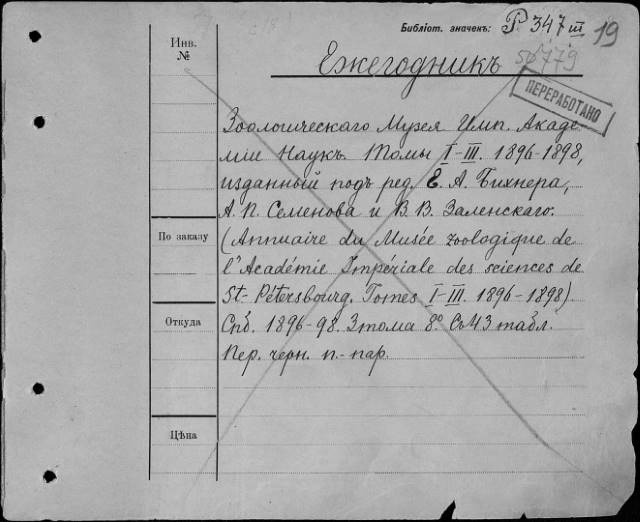 Библіот. значекъ: P 347 III 19
Инв.
№
Ежегодникъ 50779
ПЕРЕРАБОТАНО
Зоологическаго Музея Имп. Акаде-
міи Наукъ. Томы I-III. 1896-1898,
изданный подъ ред. Е. А. Бихнера,
А. П. Семенова и В. В. Заленскаго.
По заказу
(Annuaire du Musée zoologique de
l'Académie Impériale des sciences de
St-Pétersbourg. Tomes I-III. 1896-1898)
Откуда
Спб. 1896-98. 3 тома 8º. Съ 43 табл.
Пер. черн. п.-пар.
Цѣна